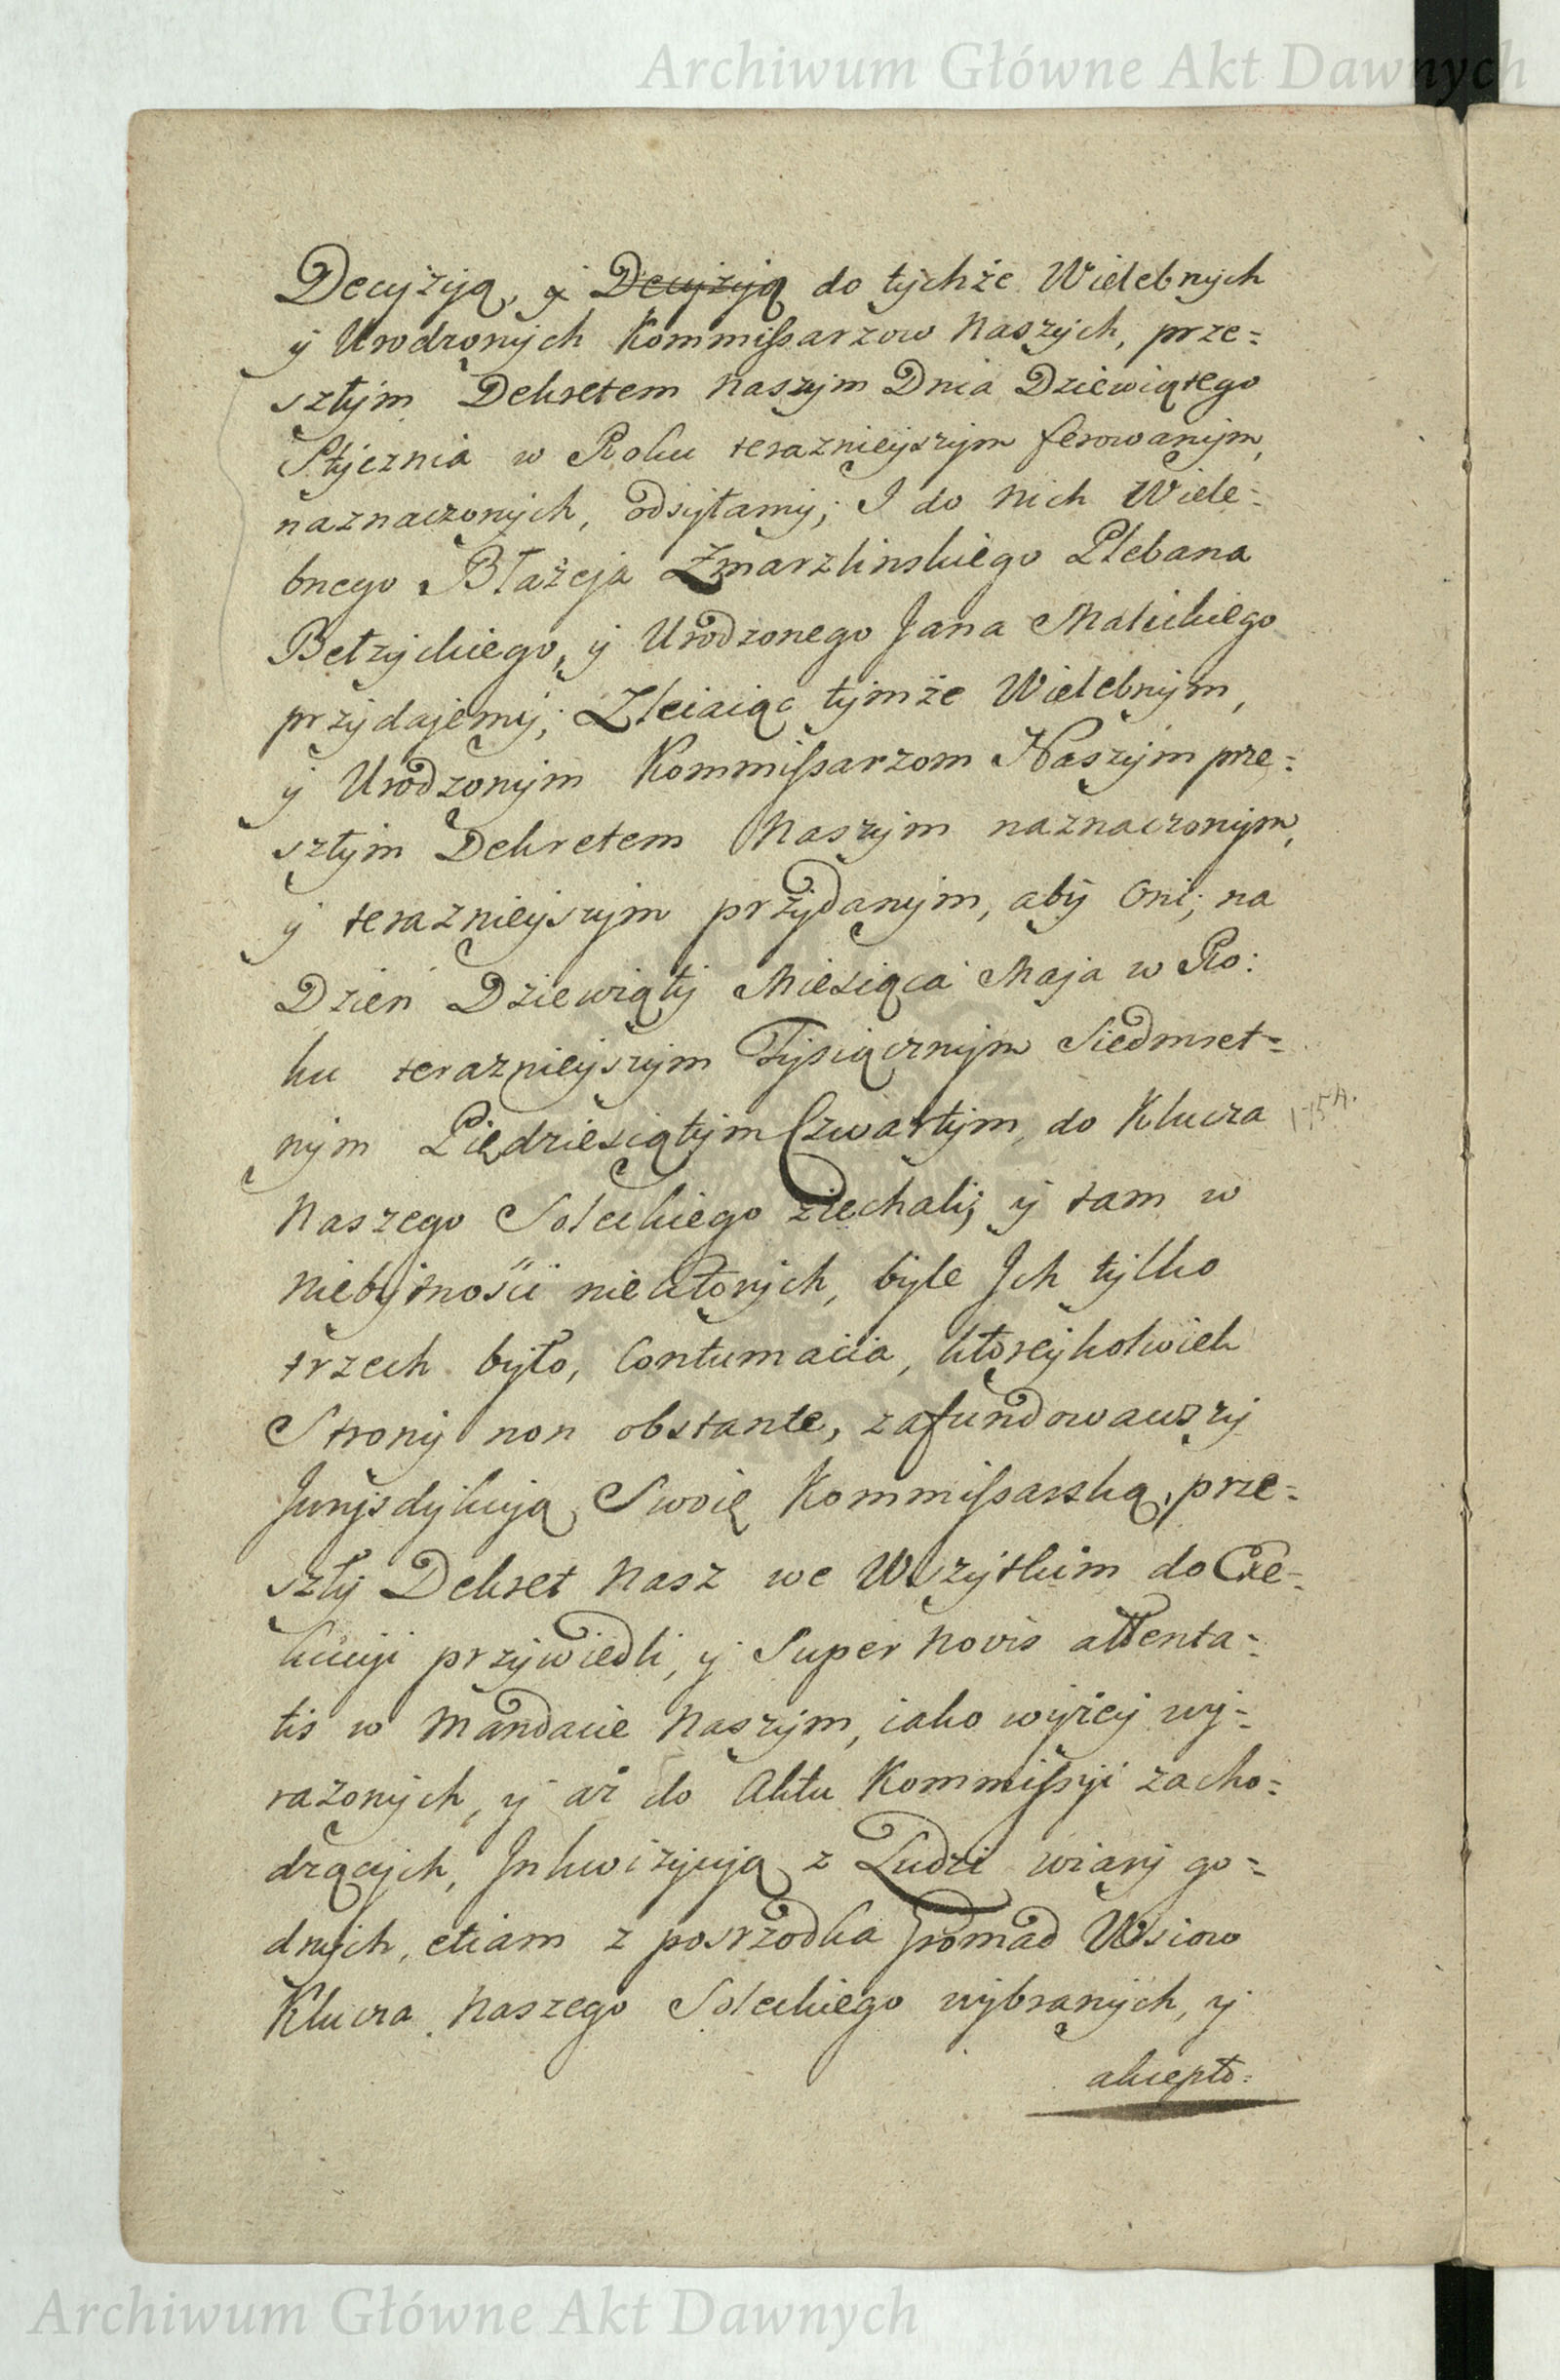 Archiwum Główne Akt Dawnych
Decyzyją, y Decyzyją do tychże Wielebnych
y Urodzonych Kommissarzow Naszych, prze=
szłym Dekretem Naszym Dnia Dziewiątego
Stycznia w Roku teraznieyszym ferowanym,
naznaczonych, odsyłamy; I do Nich Wiele=
bnego Błażeja Zmarzlinskiego Plebana
Bełzyckiego, y Urodzonego Jana Małeckiego
przydajemy; Zleciaiąc tymże Wielebnym,
y Urodzonym Kommissarzom Naszym prze=
szłym Dekretem Naszym naznaczonym,
y teraznieyszym przydanym, aby Oni; na
Dzień Dziewiąty Miesiąca Maja w Ro=
ku teraznieyszym Tysiącznym Siedmset=
nym Piędziesiątym Czwartym, do Klucza 1754.
Naszego Soleckiego ziechali; y tam w
Niebytności niektorych, byle Ich tylko
trzech było, Contumacia, ktoreykolwiek
Strony non obstante, zafundowawszy
Jurysdykcyją Swoię Kommissarską, prze=
szły Dekret Nasz we Wszytkim do Exe=
kucyi przywiedli, y Super Novis attenta=
tis w Mandacie Naszym, iako wyżey wy=
rażonych, y aż do Aktu Kommissyi zacho=
dzących, Inkwizycyją z Ludzi wiary go=
dnych, etiam z posrzodka Gromad Wsiow
Klucza Naszego Soleckiego wybranych, y
akcepto=
Archiwum Główne Akt Dawnych